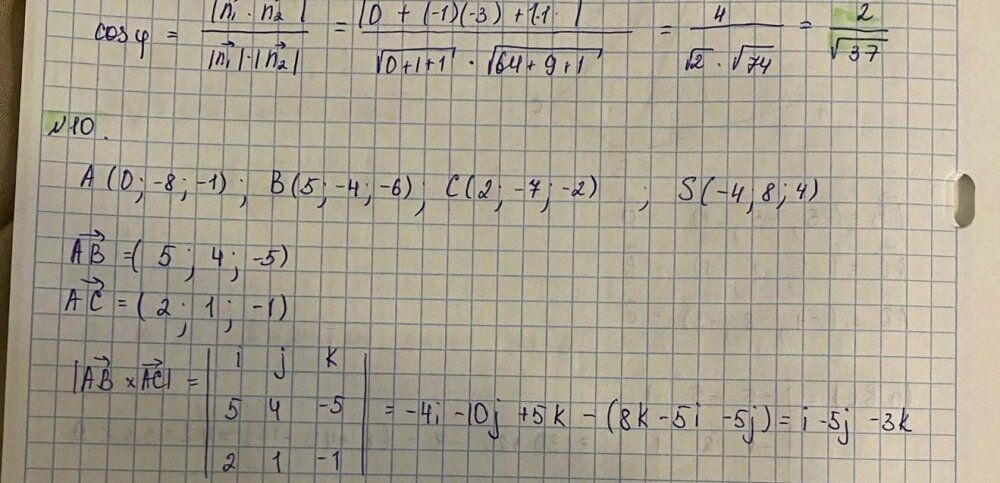 cos φ = |n₁ · n₂| / |n₁|·|n₂| = |0 + (-1)(-3) + 1·1·| / √0+1+1 · √64+9+1 = 4 / √2 · √74 = 2 / √37
№10.
A(0; -8; -1); B(5; -4; -6); C(2; -7; -2) ; S(-4; 8; 4)
AB = (5; 4; -5)
AC = (2; 1; -1)
|AB × AC| = | i j k
5 4 -5
2 1 -1 | = -4i -10j +5k - (8k -5i -5j) = i -5j -3k